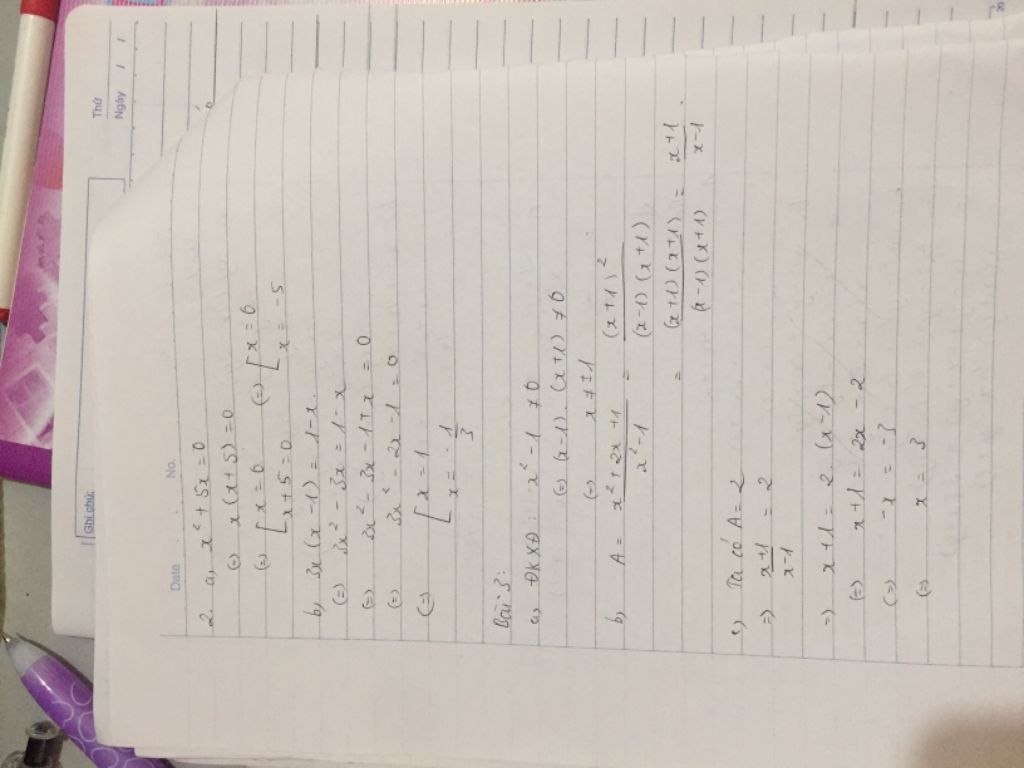 Thứ
Ngày / /
Ghi chú:
Date No.
2. a, x² + 5x = 0
(=) x(x+5) = 0
(=) [ x = 0 (=) [ x = 0
x+5 = 0 x = -5
b, 3x(x-1) = 1-x.
(=) 3x² - 3x = 1-x
(=) 3x² - 3x - 1 + x = 0
(=) 3x² - 2x - 1 = 0
(=) [ x = 1
x = -1/3
Bài 3:
a, ĐKXĐ: x² - 1 ≠ 0
(=) (x-1).(x+1) ≠ 0
(=) x ≠ ±1
b, A = (x² + 2x + 1)/(x² - 1) = (x+1)²/((x-1)(x+1))
= ((x+1)(x+1))/((x-1)(x+1)) = (x+1)/(x-1).
c, Ta có A = 2
=) (x+1)/(x-1) = 2
=) x+1 = 2.(x-1)
(=) x+1 = 2x - 2
(=) -x = -3
(=) x = 3